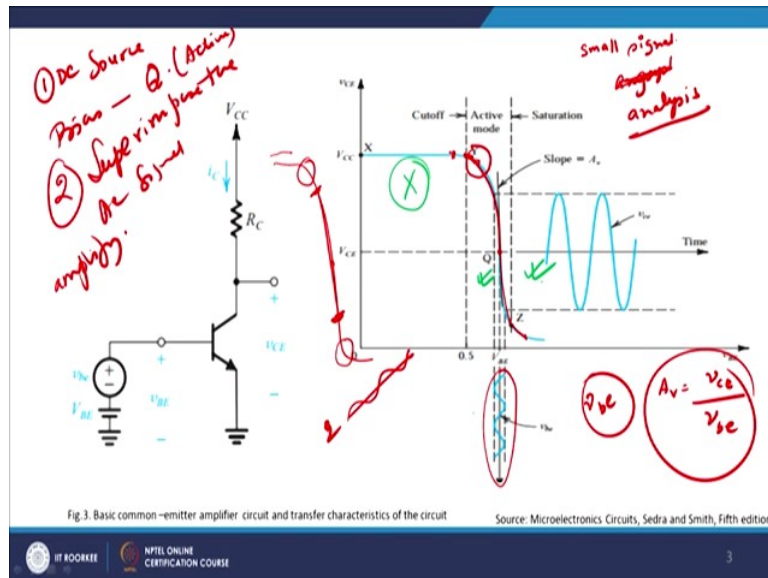 ① DC Source
Bias - Q. (Active)
② Superimpose the
Ac Signal
amplify.
small signal
analysis
V_CC
i_C
R_C
v_CE
v_be
V_BE
v_BE
v_CE
Cutoff
Active
mode
Saturation
V_CC
X
X
Slope = A_v
V_CE
Q
Z
Time
0.5
V_BE
v_be
v_be
A_v = v_ce / v_be
Fig.3. Basic common –emitter amplifier circuit and transfer characteristics of the circuit
Source: Microelectronics Circuits, Sedra and Smith, Fifth edition
IIT ROORKEE
NPTEL ONLINE
CERTIFICATION COURSE
3